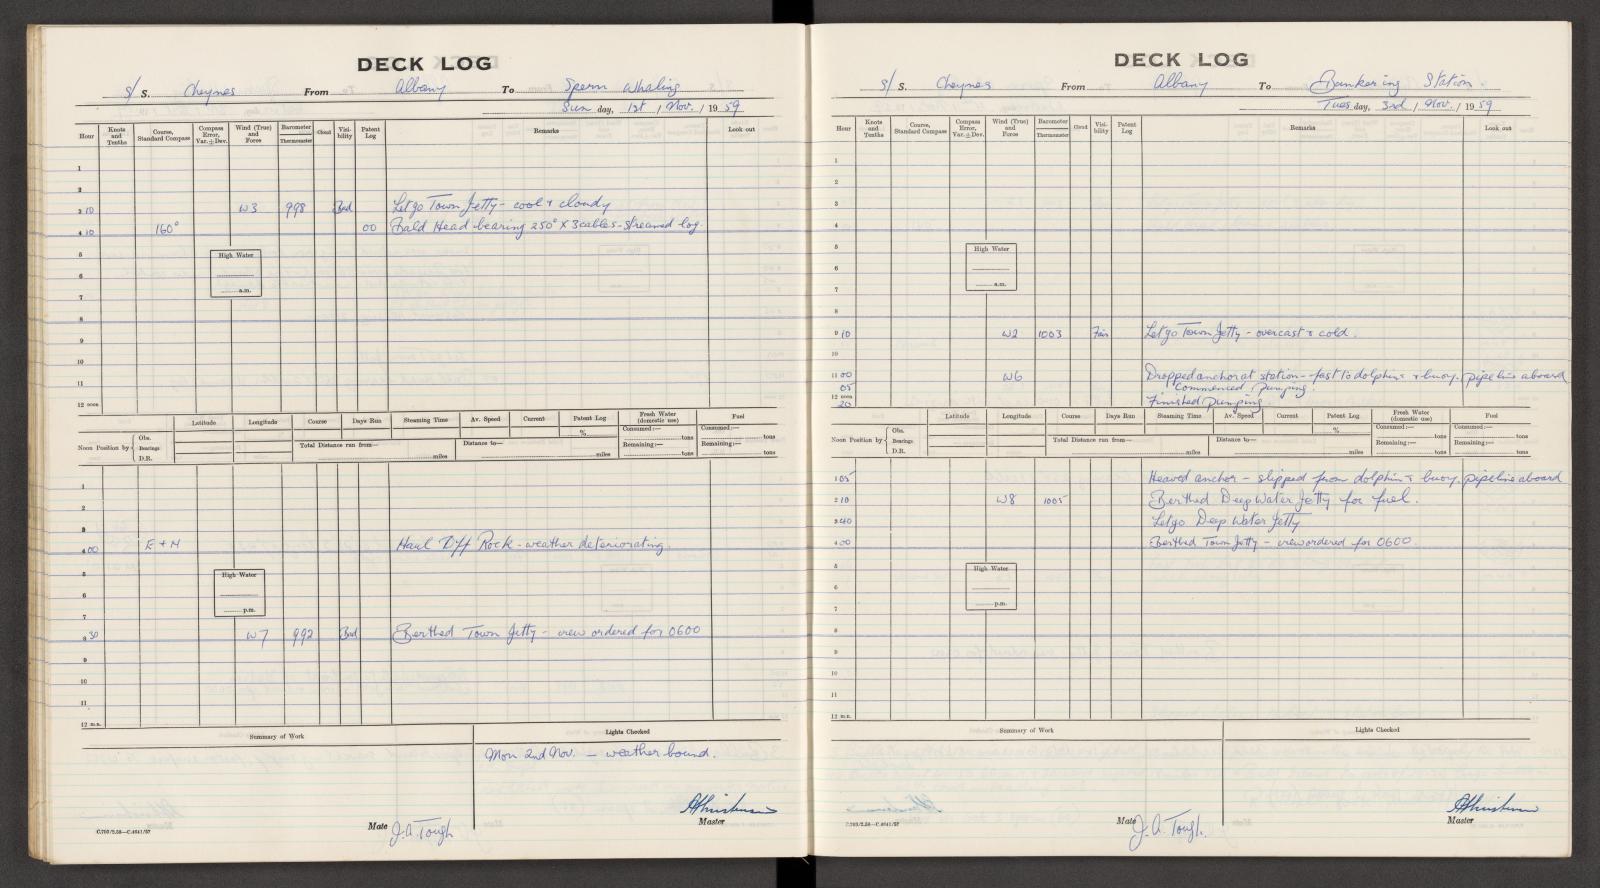 DECK LOG
S/ S. Cheynes From Albany To Sperm Whaling
Sun day, 1st / Nov. / 1959
Hour Knots and Tenths Course, Standard Compass Compass Error, Var. ± Dev. Wind (True) and Force Barometer Thermometer Cloud Visibility Patent Log Remarks Look out
1
2
3 10 W3 998 Bad Let go Town Jetty - cool & cloudy
4 10 160° 00 Bald Head bearing 250° x 3 cables - streamed log.
5 High Water
6
7 a.m.
8
9
10
11
12 noon
Latitude Longitude Course Days Run Steaming Time Av. Speed Current Patent Log Fresh Water (domestic use) Fuel
% Consumed:— tons Consumed:— tons
Noon Position by Obs. Bearings D.R. Total Distance run from— miles Distance to— miles Remaining:— tons Remaining:— tons
1
2
3
4 00 E + N Haul Off Rock - weather deteriorating.
5
High Water
6
7 p.m.
8 30 W7 992 Bad Berthed Town Jetty - crew ordered for 0600
9
10
11
12 m.n.
Summary of Work Lights Checked
Mon 2nd Nov. — weather bound.
C.703/2.58—C.4641/57 Mate J.A. Tough Master
DECK LOG
S/ S. Cheynes From Albany To Bunkering Station
Tues day, 3rd / Nov. / 1959
Hour Knots and Tenths Course, Standard Compass Compass Error, Var. ± Dev. Wind (True) and Force Barometer Thermometer Cloud Visibility Patent Log Remarks Look out
1
2
3
4
5 High Water
6
7 a.m.
8
9 10 W2 1003 Fair Let go Town Jetty - overcast & cold.
10
11 00 W6 Dropped anchor at station - fast to dolphin & buoy. pipeline aboard
05 Commenced pumping.
12 noon 20 Finished pumping
Latitude Longitude Course Days Run Steaming Time Av. Speed Current Patent Log Fresh Water (domestic use) Fuel
% Consumed:— tons Consumed:— tons
Noon Position by Obs. Bearings D.R. Total Distance run from— miles Distance to— miles Remaining:— tons Remaining:— tons
1 05 Heaved anchor - slipped from dolphin & buoy. pipeline aboard
2 10 W8 1005 Berthed Deep Water Jetty for fuel.
3 40 Let go Deep Water Jetty
4 00 Berthed Town Jetty - crew ordered for 0600.
5 High Water
6
7 p.m.
8
9
10
11
12 m.n.
Summary of Work Lights Checked
C.703/2.58—C.4641/57 Mate J.A. Tough. Master